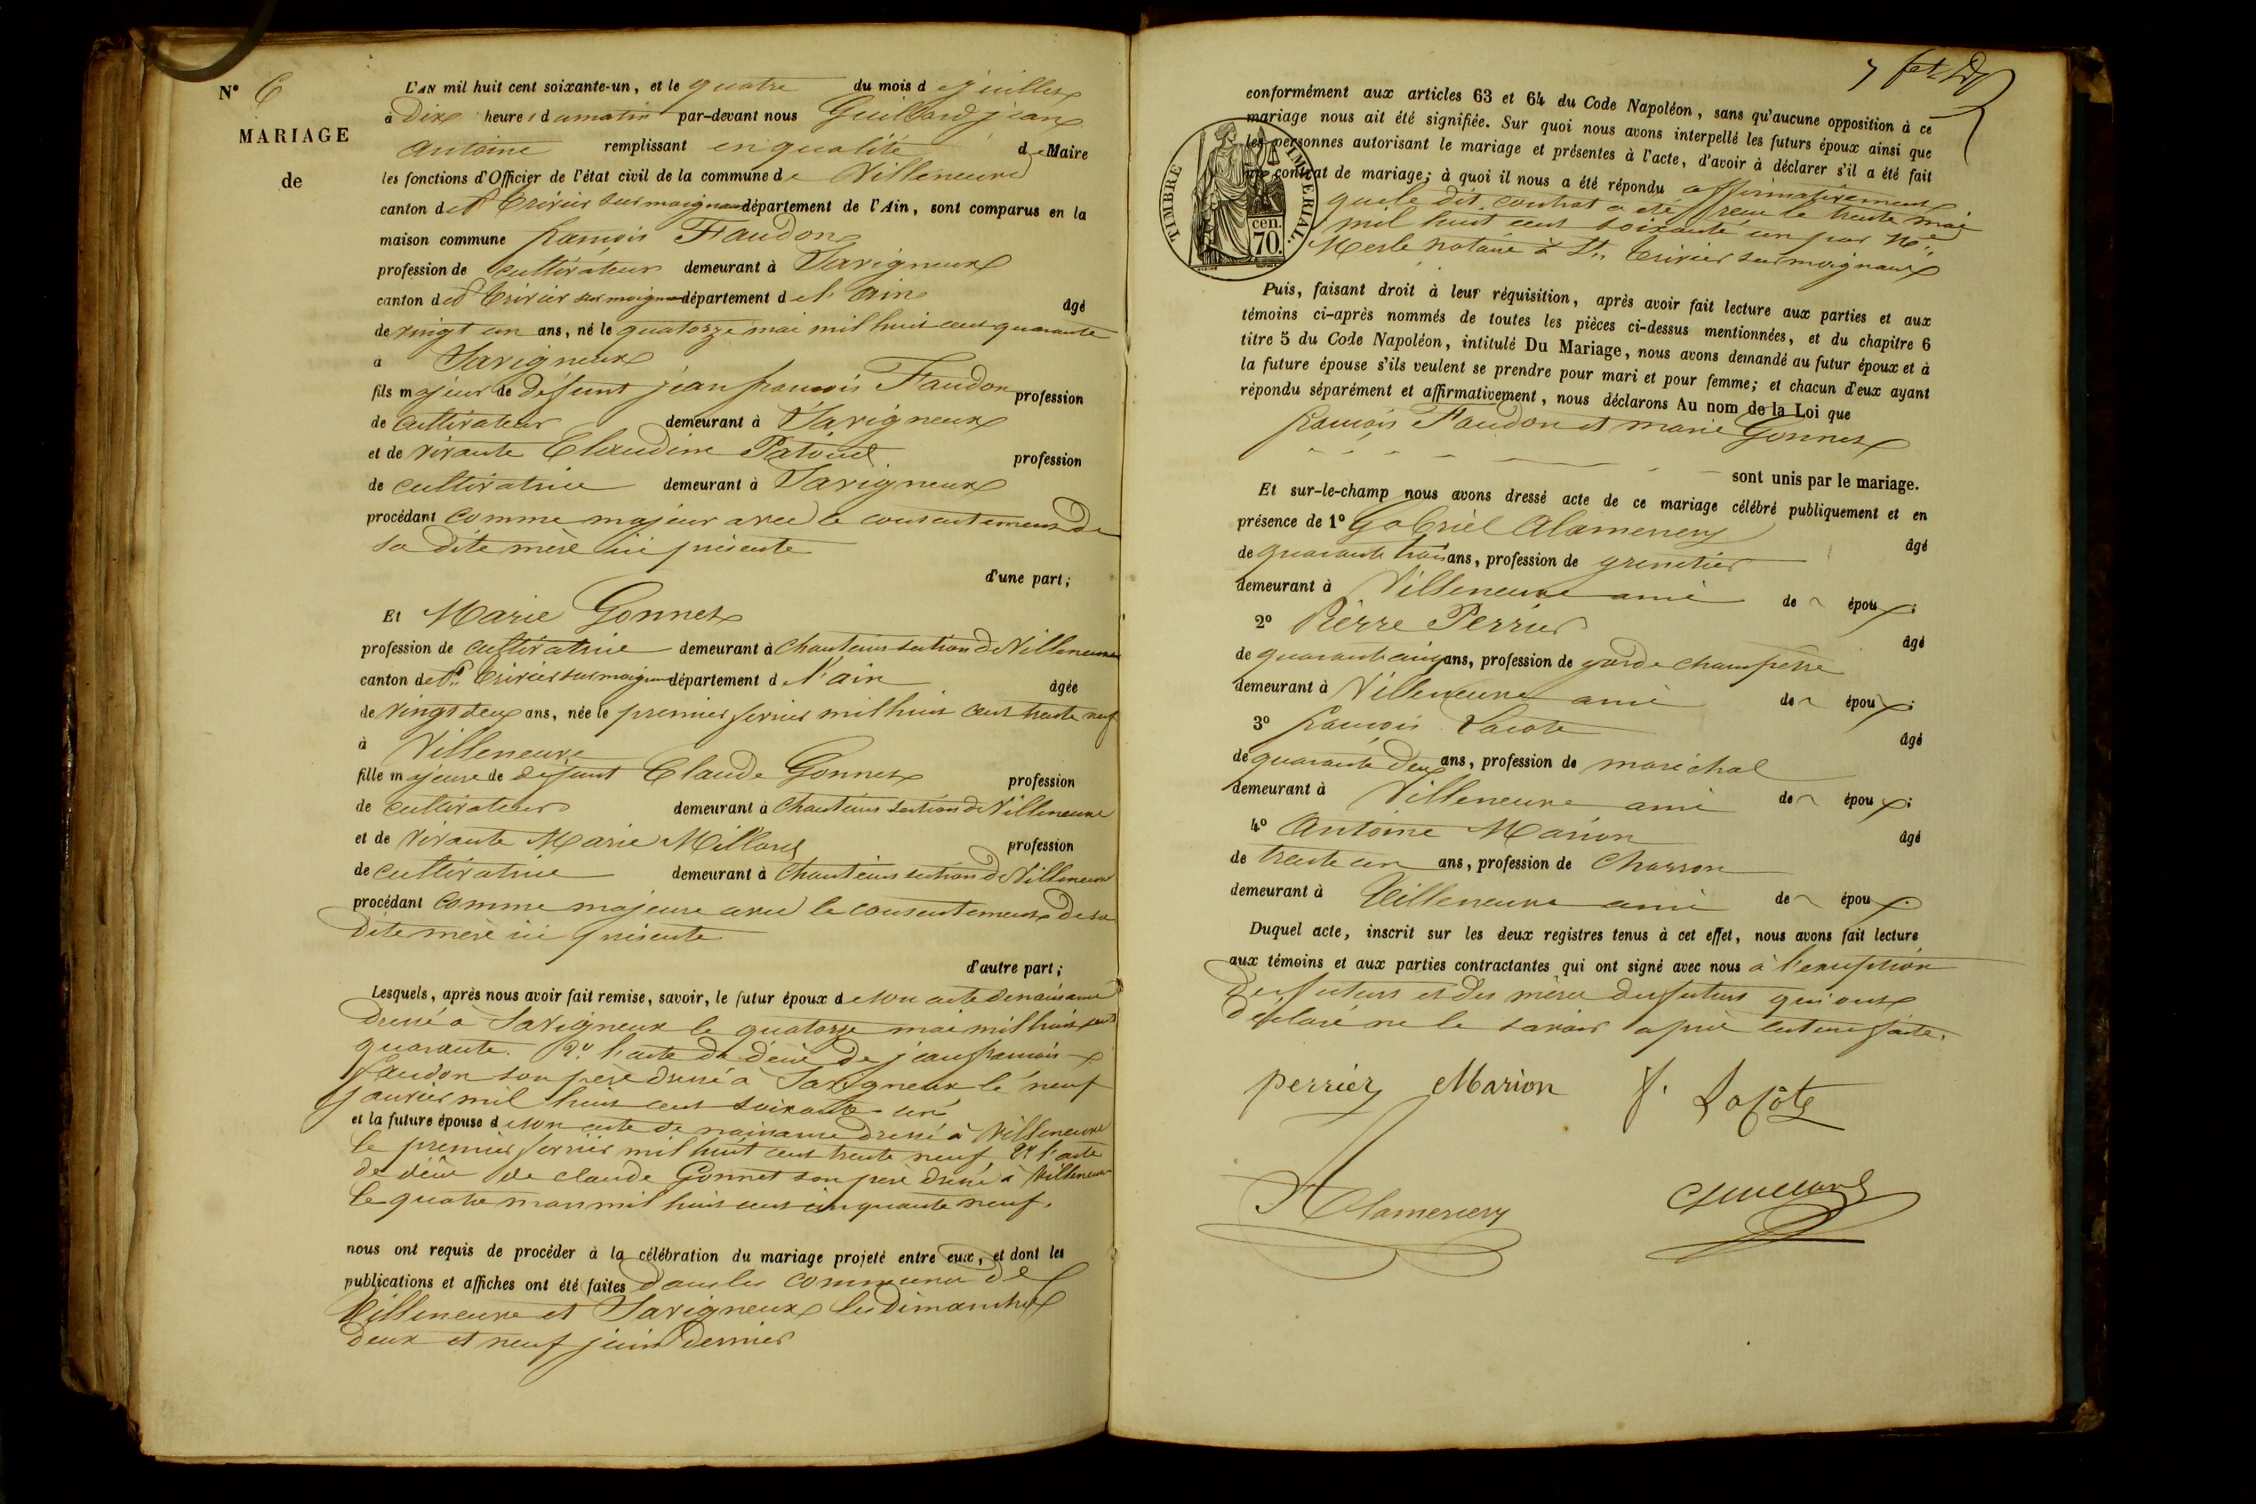 N° 6
MARIAGE
de
L'AN mil huit cent soixante-un, et le quatre du mois de juillet
à Dix heures du matin par-devant nous Guillard jean
antoine remplissant en qualité de Maire
les fonctions d'Officier de l'état civil de la commune de Villeneuve
canton de St Trivier sur moignans département de l'Ain, sont comparus en la
maison commune françois Faudon
profession de cultivateur demeurant à Savigneux
canton de St Trivier sur moignans département de l'ain âgé
de vingt un ans, né le quatorze mai mil huit cent quarante
à Savigneux
fils majeur de défunt jean françois Faudon profession
de cultivateur demeurant à Savigneux
et de vivante Claudine profession
de cultivatrice demeurant à Savigneux
procédant comme majeur avec le consentement de
sa dite mère ici présente
d'une part;
Et Marie Gonnet
profession de cultivatrice demeurant à Chanteins section de Villeneuve
canton de St Trivier sur moignans département de l'ain âgée
de vingt deux ans, née le premier fevrier mil huit cent trente neuf
à Villeneuve
fille majeure de défunt Claude Gonnet profession
de cultivateur demeurant à Chanteins section de Villeneuve
et de vivante Marie Millard profession
de cultivatrice demeurant à Chanteins section de Villeneuve
procédant comme majeure avec le consentement de sa
dite mère ici présente
d'autre part;
Lesquels, après nous avoir fait remise, savoir, le futur époux de son acte de naissance
dressé à Savigneux le quatorze mai mil huit cent
quarante. 2° l'acte de décès de jean françois
faudon son père dressé à Savigneux le neuf
janvier mil huit cent soixante un
et la future épouse de son acte de naissance dressé à Villeneuve
le premier fevrier mil huit cent trente neuf 2° l'acte
de décès de claude Gonnet son père dressé à Villeneuve
le quatre mars mil huit cent cinquante neuf.
nous ont requis de procéder à la célébration du mariage projeté entre eux, et dont les
publications et affiches ont été faites dans les communes de
Villeneuve et Savigneux les Dimanches
deux et neuf juin dernier
7
conformément aux articles 63 et 64 du Code Napoléon, sans qu'aucune opposition à ce
mariage nous ait été signifiée. Sur quoi nous avons interpellé les futurs époux ainsi que
les personnes autorisant le mariage et présentes à l'acte, d'avoir à déclarer s'il a été fait
un contrat de mariage; à quoi il nous a été répondu affirmativement
que le dit contrat a été reçu le trente mai
mil huit cent soixante un par Me
Merle notaire à St Trivier sur moignans
TIMBRE IMPÉRIAL.
70 cen.
Puis, faisant droit à leur réquisition, après avoir fait lecture aux parties et aux
témoins ci-après nommés de toutes les pièces ci-dessus mentionnées, et du chapitre 6
titre 5 du Code Napoléon, intitulé Du Mariage, nous avons demandé au futur époux et à
la future épouse s'ils veulent se prendre pour mari et pour femme; et chacun d'eux ayant
répondu séparément et affirmativement, nous déclarons Au nom de la Loi que
françois Faudon et marie Gonnet
sont unis par le mariage.
Et sur-le-champ nous avons dressé acte de ce mariage célébré publiquement et en
présence de 1° Gabriel Alamercery âgé
de quarante trois ans, profession de grenetier
demeurant à Villeneuve ami de époux;
2° Pierre Perrier âgé
de quarante cinq ans, profession de garde champêtre
demeurant à Villeneuve ami de époux;
3° françois Lacote âgé
de quarante deux ans, profession de maréchal
demeurant à Villeneuve ami de époux;
4° Antoine Marion âgé
de trente un ans, profession de charron
demeurant à Villeneuve ami de époux.
Duquel acte, inscrit sur les deux registres tenus à cet effet, nous avons fait lecture
aux témoins et aux parties contractantes qui ont signé avec nous à l'exception
des futurs et des mères des futurs qui ont
déclaré ne le savoir après lecture faite.
perrier Marion f. Lacôte
Alamercery Guillard